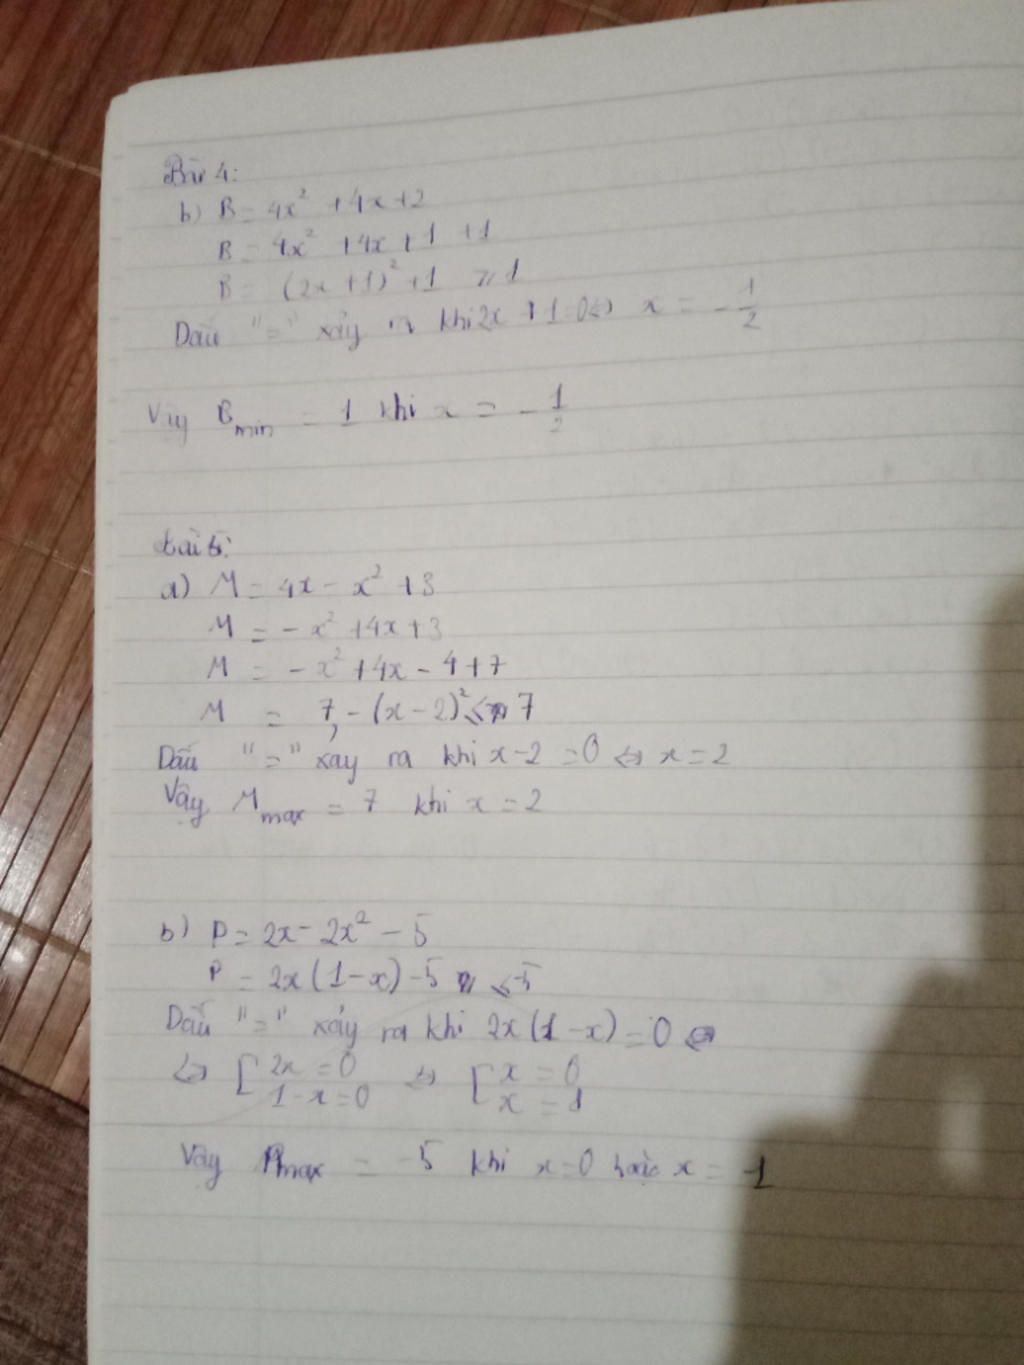 Bài 4:
b) B = 4x² + 4x + 2
B = 4x² + 4x + 1 + 1
B = (2x + 1)² + 1 ⩾ 1
Dấu "=" xảy ra khi 2x + 1 = 0 ⇔ x = - 1/2
Vậy B min = 1 khi x = - 1/2
bài 5:
a) M = 4x - x² + 3
M = - x² + 4x + 3
M = - x² + 4x - 4 + 7
M = 7 - (x - 2)² ⩽ 7
Dấu "=" xảy ra khi x - 2 = 0 ⇔ x = 2
Vậy M max = 7 khi x = 2
b) P = 2x - 2x² - 5
P = 2x (1 - x) - 5 ⩽ -5
Dấu "=" xảy ra khi 2x (1 - x) = 0 ⇔
⇔ [ 2x = 0 ⇔ [ x = 0
1 - x = 0 x = 1
Vậy Pmax = -5 khi x = 0 hoặc x = 1